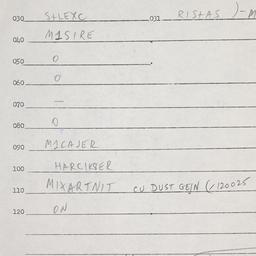 030 S+LEXC 031 RIS+AS )-M
040 M1SIRE
050 O
060 O
070 —
080 O
090 M1CAJER
100 HARCIKSER
110 MIXARTNIT CU DUST GEJN (/120025
120 ON